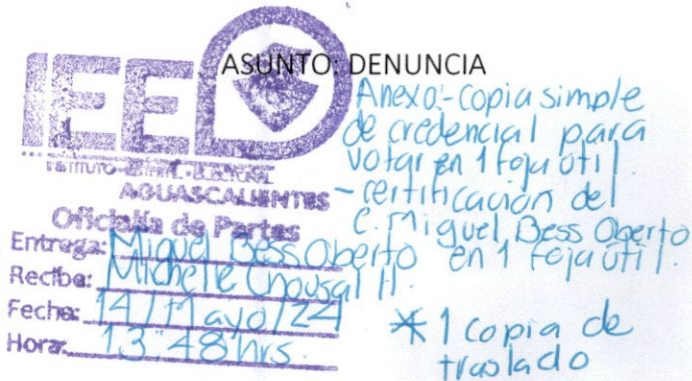 ASUNTO: DENUNCIA
IEE
INSTITUTO ESTATAL ELECTORAL
AGUASCALIENTES
Oficialía de Partes
Entrega: Miguel Bess Oberto
Recibe: Michelle Chousal H.
Fecha: 14/Mayo/24
Hora: 13:48 hrs.
Anexo:- Copia simple
de credencial para
votar en 1 foja útil.
- certificación del
C. Miguel Bess Oberto
en 1 foja útil.
* 1 copia de
traslado